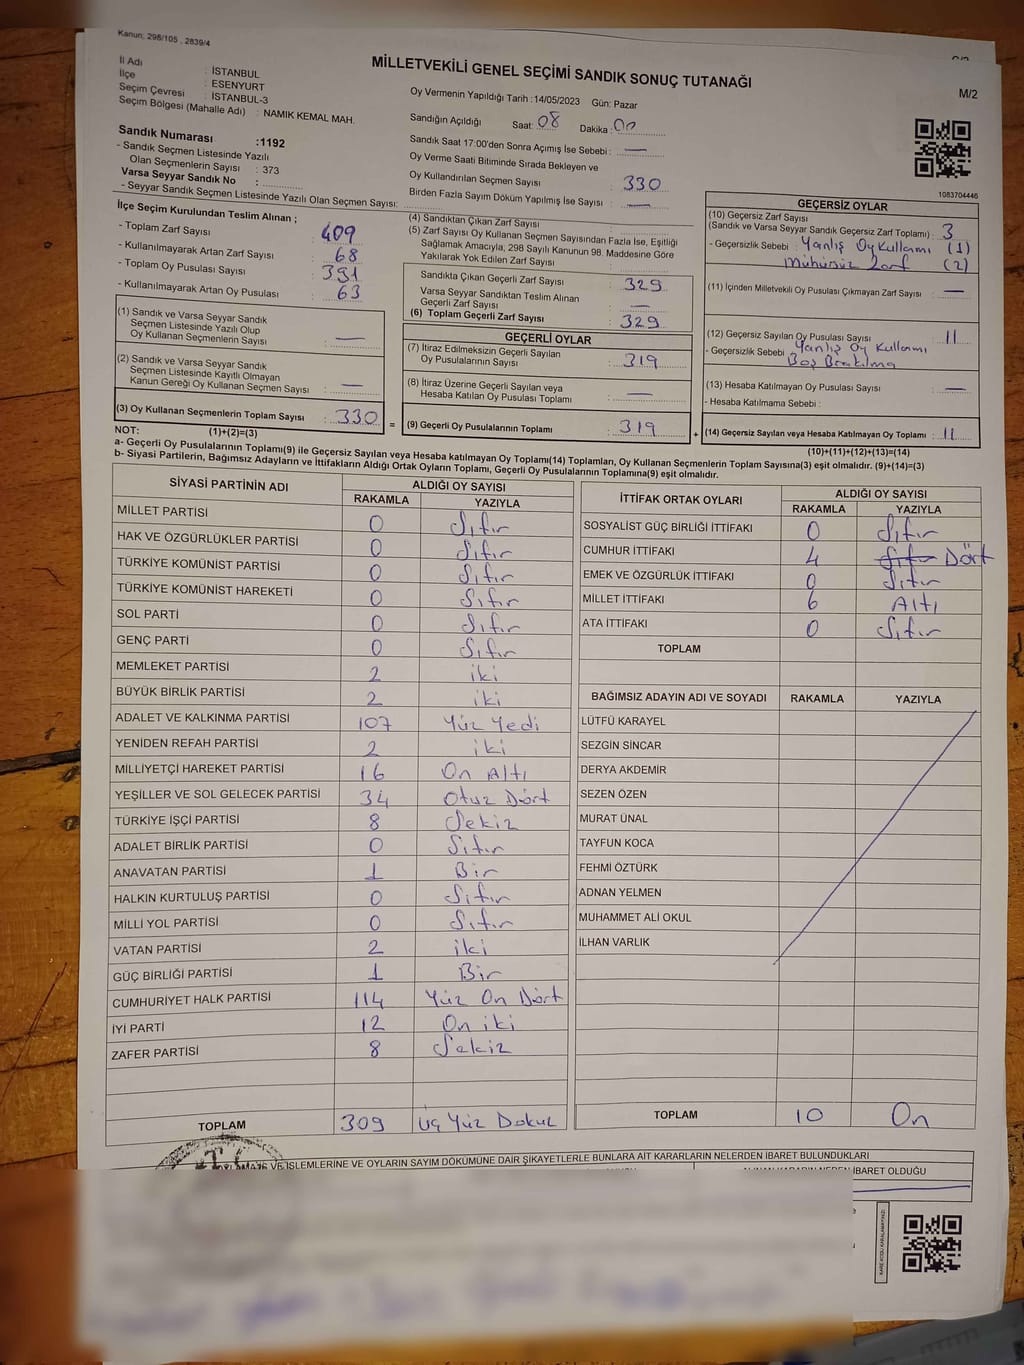 Kanun: 298/105 , 2839/4
MİLLETVEKİLİ GENEL SEÇİMİ SANDIK SONUÇ TUTANAĞI
M/2
İl Adı : İSTANBUL
İlçe : ESENYURT
Seçim Çevresi : İSTANBUL-3
Seçim Bölgesi (Mahalle Adı) : NAMIK KEMAL MAH.
Sandık Numarası :1192
- Sandık Seçmen Listesinde Yazılı
Olan Seçmenlerin Sayısı : 373
Varsa Seyyar Sandık No :
- Seyyar Sandık Seçmen Listesinde Yazılı Olan Seçmen Sayısı:
Oy Vermenin Yapıldığı Tarih :14/05/2023 Gün: Pazar
Sandığın Açıldığı Saat: 08 Dakika: 00
Sandık Saat 17:00'den Sonra Açımış İse Sebebi : —
Oy Verme Saati Bitiminde Sırada Bekleyen ve
Oy Kullandırılan Seçmen Sayısı : 330
Birden Fazla Sayım Döküm Yapılmış İse Sayısı : —
1083704446
İlçe Seçim Kurulundan Teslim Alınan ;
- Toplam Zarf Sayısı : 409
- Kullanılmayarak Artan Zarf Sayısı : 68
- Toplam Oy Pusulası Sayısı : 391
- Kullanılmayarak Artan Oy Pusulası : 63
(1) Sandık ve Varsa Seyyar Sandık
Seçmen Listesinde Yazılı Olup
Oy Kullanan Seçmenlerin Sayısı : —
(2) Sandık ve Varsa Seyyar Sandık
Seçmen Listesinde Kayıtlı Olmayan
Kanun Gereği Oy Kullanan Seçmen Sayısı : —
(3) Oy Kullanan Seçmenlerin Toplam Sayısı : 330 =
(4) Sandıktan Çıkan Zarf Sayısı :
(5) Zarf Sayısı Oy Kullanan Seçmen Sayısından Fazla İse, Eşitliği
Sağlamak Amacıyla, 298 Sayılı Kanunun 98. Maddesine Göre
Yakılarak Yok Edilen Zarf Sayısı :
Sandıkta Çıkan Geçerli Zarf Sayısı : 329
Varsa Seyyar Sandıktan Teslim Alınan
Geçerli Zarf Sayısı : —
(6) Toplam Geçerli Zarf Sayısı : 329
GEÇERLİ OYLAR
(7) İtiraz Edilmeksizin Geçerli Sayılan
Oy Pusulalarının Sayısı : 319
(8) İtiraz Üzerine Geçerli Sayılan veya
Hesaba Katılan Oy Pusulası Toplamı : —
(9) Geçerli Oy Pusulalarının Toplamı : 319 +
GEÇERSİZ OYLAR
(10) Geçersiz Zarf Sayısı
(Sandık ve Varsa Seyyar Sandık Geçersiz Zarf Toplamı) : 3
- Geçersizlik Sebebi : Yanlış Oy Kullanımı (1)
Mühürsüz Zarf (2)
(11) İçinden Milletvekili Oy Pusulası Çıkmayan Zarf Sayısı : —
(12) Geçersiz Sayılan Oy Pusulası Sayısı : 11
- Geçersizlik Sebebi : Yanlış Oy Kullanımı
Boş Bırakılma
(13) Hesaba Katılmayan Oy Pusulası Sayısı : —
- Hesaba Katılmama Sebebi :
(14) Geçersiz Sayılan veya Hesaba Katılmayan Oy Toplamı : 11
NOT: (1)+(2)=(3)
(10)+(11)+(12)+(13)=(14)
a- Geçerli Oy Pusulalarının Toplamı(9) ile Geçersiz Sayılan veya Hesaba katılmayan Oy Toplamı(14) Toplamları, Oy Kullanan Seçmenlerin Toplam Sayısına(3) eşit olmalıdır. (9)+(14)=(3)
b- Siyasi Partilerin, Bağımsız Adayların ve İttifakların Aldığı Ortak Oyların Toplamı, Geçerli Oy Pusulalarının Toplamına(9) eşit olmalıdır.
SİYASİ PARTİNİN ADI ALDIĞI OY SAYISI
RAKAMLA YAZIYLA
MİLLET PARTİSİ 0 Sıfır
HAK VE ÖZGÜRLÜKLER PARTİSİ 0 Sıfır
TÜRKİYE KOMÜNİST PARTİSİ 0 Sıfır
TÜRKİYE KOMÜNİST HAREKETİ 0 Sıfır
SOL PARTİ 0 Sıfır
GENÇ PARTİ 0 Sıfır
MEMLEKET PARTİSİ 2 iki
BÜYÜK BİRLİK PARTİSİ 2 iki
ADALET VE KALKINMA PARTİSİ 107 Yüz Yedi
YENİDEN REFAH PARTİSİ 2 iki
MİLLİYETÇİ HAREKET PARTİSİ 16 On Altı
YEŞİLLER VE SOL GELECEK PARTİSİ 34 Otuz Dört
TÜRKİYE İŞÇİ PARTİSİ 8 Sekiz
ADALET BİRLİK PARTİSİ 0 Sıfır
ANAVATAN PARTİSİ 1 Bir
HALKIN KURTULUŞ PARTİSİ 0 Sıfır
MİLLİ YOL PARTİSİ 0 Sıfır
VATAN PARTİSİ 2 iki
GÜÇ BİRLİĞİ PARTİSİ 1 Bir
CUMHURİYET HALK PARTİSİ 114 Yüz On Dört
İYİ PARTİ 12 On iki
ZAFER PARTİSİ 8 Sekiz
TOPLAM 309 Üç Yüz Dokuz
İTTİFAK ORTAK OYLARI ALDIĞI OY SAYISI
RAKAMLA YAZIYLA
SOSYALİST GÜÇ BİRLİĞİ İTTİFAKI 0 Sıfır
CUMHUR İTTİFAKI 4 Sıfır Dört
EMEK VE ÖZGÜRLÜK İTTİFAKI 0 Sıfır
MİLLET İTTİFAKI 6 Altı
ATA İTTİFAKI 0 Sıfır
TOPLAM
BAĞIMSIZ ADAYIN ADI VE SOYADI RAKAMLA YAZIYLA
LÜTFÜ KARAYEL
SEZGİN SİNCAR
DERYA AKDEMİR
SEZEN ÖZEN
MURAT ÜNAL
TAYFUN KOCA
FEHMİ ÖZTÜRK
ADNAN YELMEN
MUHAMMET ALİ OKUL
İLHAN VARLIK
TOPLAM 10 On
VE İŞLEMLERİNE VE OYLARIN SAYIM DÖKÜMÜNE DAİR ŞİKAYETLERLE BUNLARA AİT KARARLARIN NELERDEN İBARET BULUNDUKLARI
İBARET OLDUĞU